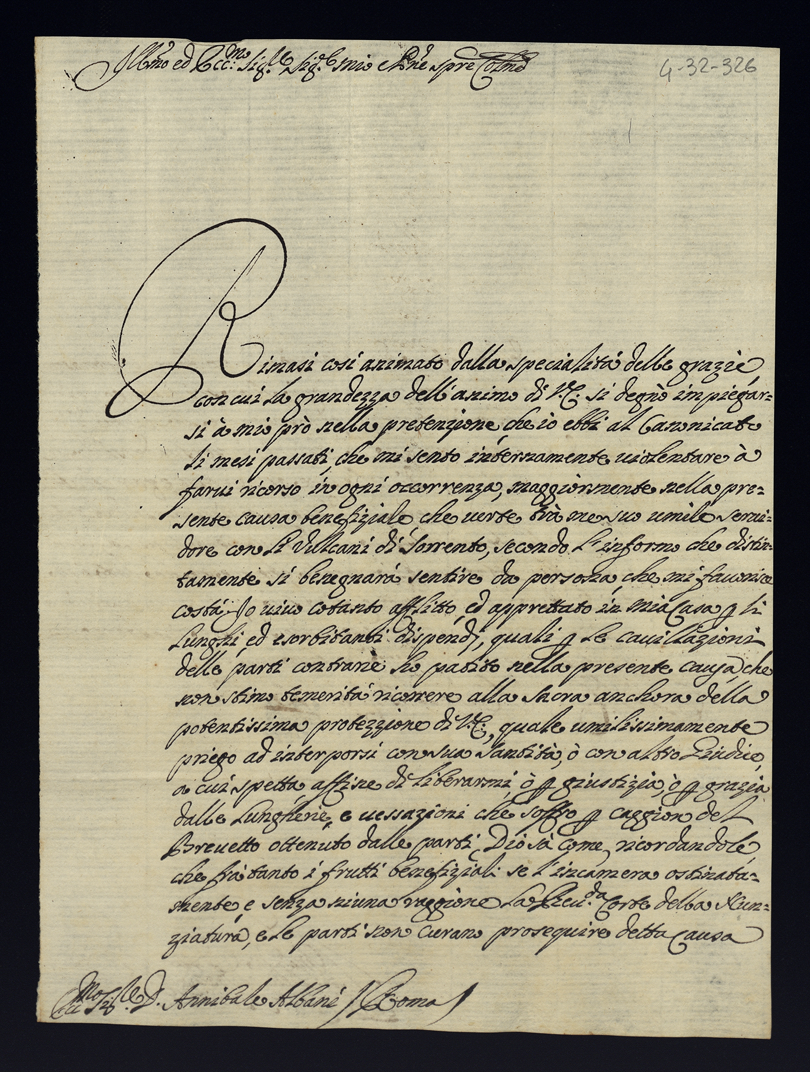 Ill.mo ed Ecc.mo Sig.re Sig.re mio e Pne spre Colmo
4-32-326
Rimasi così animato dalla specialità delle grazie,
con cui la grandezza dell'animo di V.E. si degnò impiegar=
si à mio prò nella pretenzione, che io ebbi al Canonicato
li mesi passati, che mi sento internamente violentare à
farvi ricorso in ogni occorrenza, maggiormente nella pre=
sente causa benefiziale, che verte trà me suo umile servi=
dore con li Vulcani di Sorrento, secondo l'informo che distin=
tamente si benegnarà sentire da persona, che mi favorisce
costà. Io vivo cotanto afflitto, ed apprettato in mia Casa p li
lunghi ed esorbitanti dispendj, quali p le cavillazioni
delle parti contrarie hò patito nella presente causa, che
non stimo temerità ricorrere alla sacra anchora della
potentissima protezzione di V.E., quale umilissimamente
priego ad interporsi con sua Santità, ò con altro Giudice,
a cui spetta affine di liberarmi, ò p giustizia, ò p grazia
dalle lungherie, e vessazioni che soffro p caggion del
Brevetto ottenuto dalle parti, Dio sà come, ricordandole
che frà tanto i frutti benefiziali se l'incamera ostinata=
mente, e senza niuna raggione la Rev.da Corte della Nun=
ziatura, e le parti non curano proseguire detta causa
Ecc.mo Sig.re D. Annibale Albani (Roma)